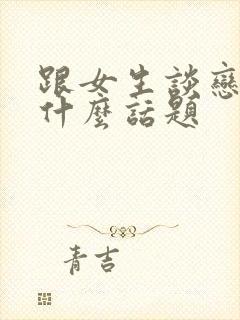 跟女生談戀
什麼話題
青吉